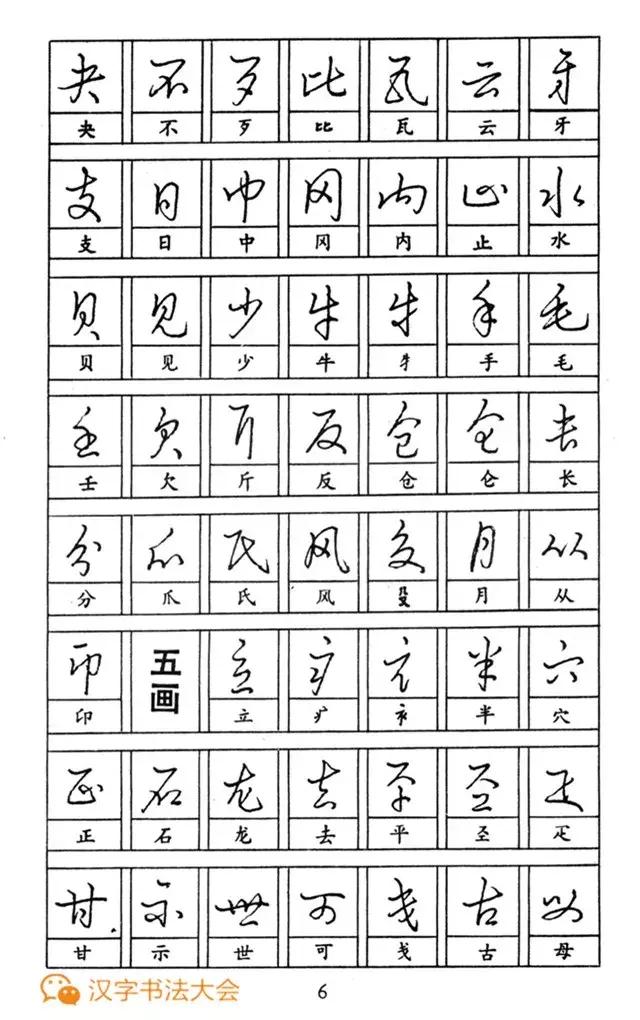 夬 不 歹 比 瓦 云 牙
夬 不 歹 比 瓦 云 牙
支 日 中 冈 内 止 水
支 日 中 冈 内 止 水
贝 见 少 牛 牜 手 毛
贝 见 少 牛 牜 手 毛
壬 欠 斤 反 仓 仑 长
壬 欠 斤 反 仓 仑 长
分 爪 氏 风 殳 月 从
分 爪 氏 风 殳 月 从
印 五画 立 疒 衤 半 穴
印 立 疒 衤 半 穴
正 石 龙 去 平 圣 疋
正 石 龙 去 平 圣 疋
甘 示 世 可 戋 古 母
甘 示 世 可 戋 古 母
汉字书法大会
6